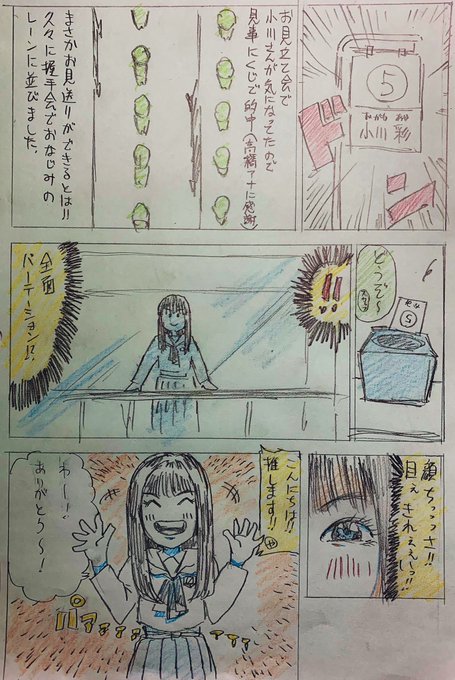 ⑤
おがわ あや
小川 彩
お見立て会で
小川さんが気になってたので
見事にくじで的中(高橋アナに感謝)
まさかお見送りができるとは!!
久々に握手会でおなじみの
レーンに並びました。
どうぞ〜
⑤
!!
全面
パーテーション!?
顔ちっっっさ!!
目ぇきれぇぇいっ!!
こんにちは!!
推します!!
わーい!!
ありがとう〜!
パァァァァァァァ